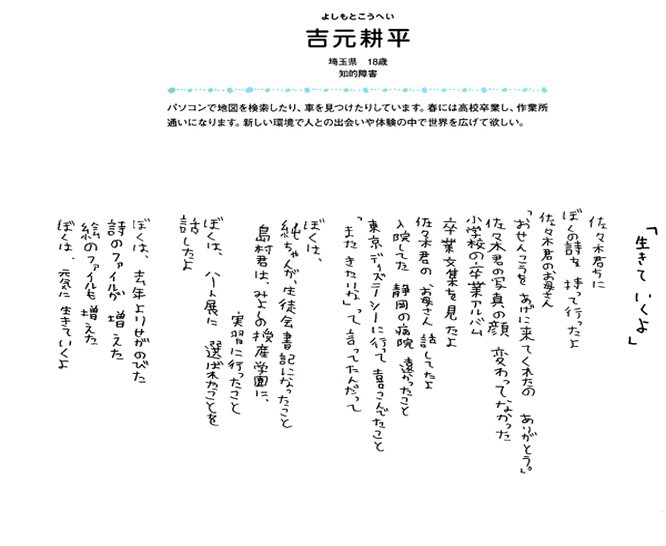 よしもとこうへい
吉元耕平
埼玉県　18歳
知的障害
パソコンで地図を検索したり、車を見つけたりしています。春には高校卒業し、作業所
通いになります。新しい環境で人との出会いや体験の中で世界を広げて欲しい。
「生きて いくよ」
佐々木君ちに
ぼくの詩を 持って行ったよ
佐々木君のお母さん
「おせんこうを あげに来てくれたの ありがとう。」
佐々木君の写真の顔 変わってなかった
小学校の卒業アルバム
卒業文集を見たよ
佐々木君の お母さん 話してたよ
入院してた 静岡の病院 遠かったこと
東京ディズニーシーに行って 喜こんでたこと
「また きたいな」って 言ってたんだって
ぼくは、
純ちゃんが、生徒会書記になったこと
島村君は、みよしの授産学園に、
実習に行ったこと
ぼくは、ハート展に 選ばれたことを
話したよ
ぼくは、去年よりせがのびた
詩のファイルが 増えた
絵のファイルも 増えた
ぼくは、元気に 生きていくよ